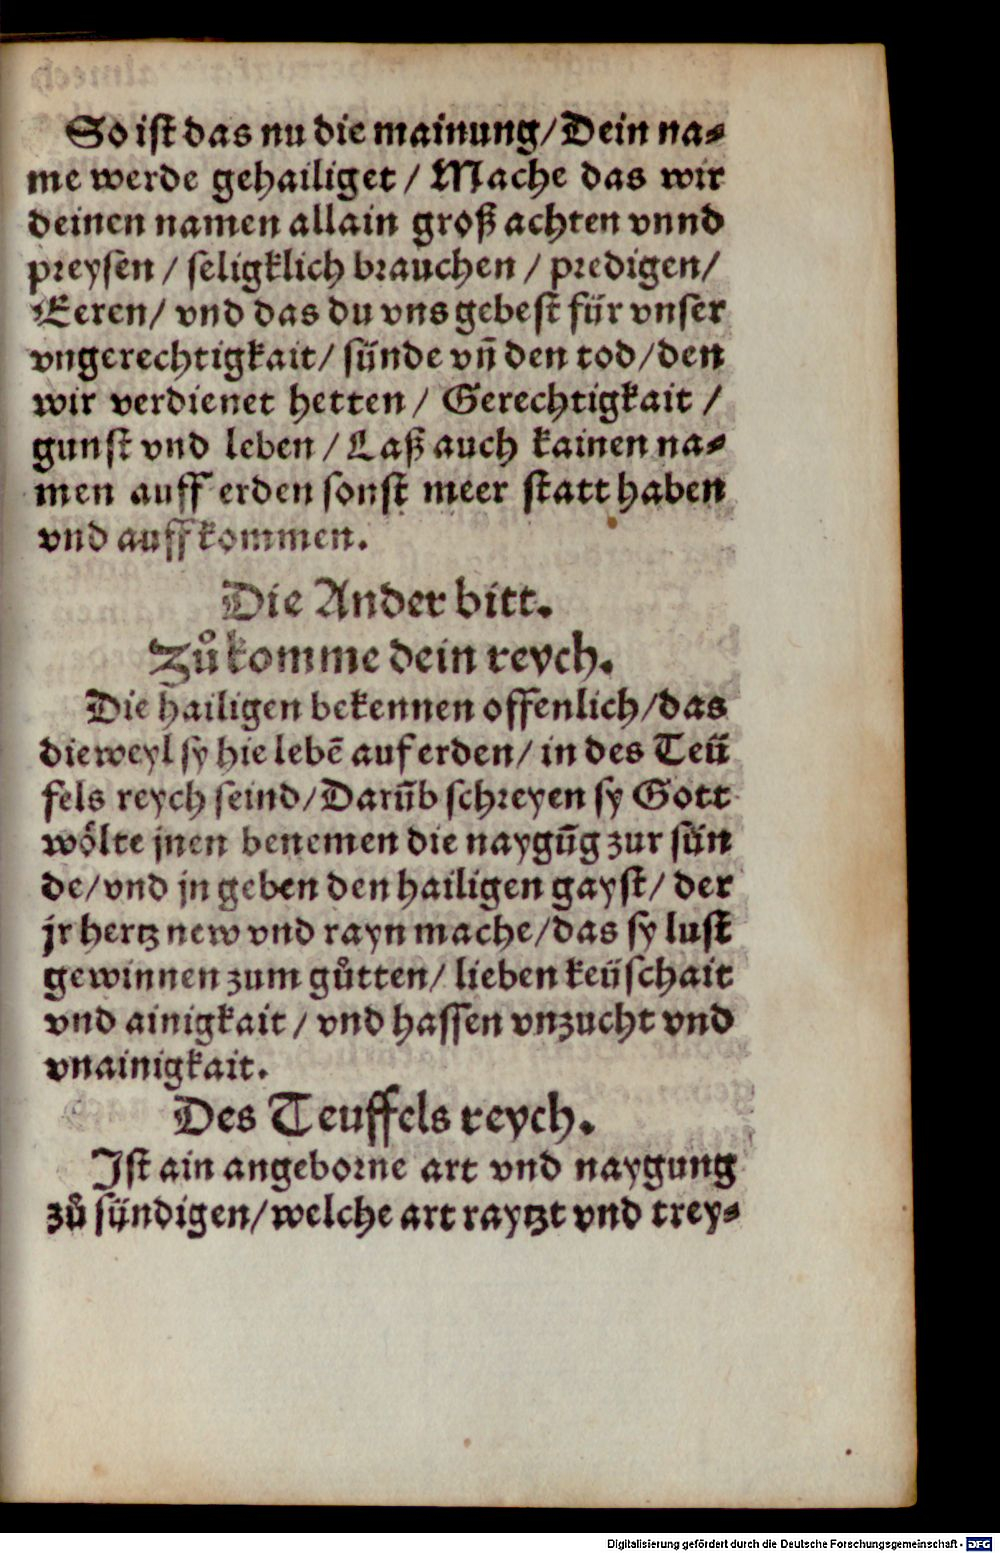 So ist das nu die mainung/Dein na⸗
me werde gehailiget / Mache das wir
deinen namen allain groß achten vnnd
preysen / seligklich brauchen / predigen/
Eeren/ vnd das du vns gebest für vnser
vngerechtigkait/ sünde vñ den tod/den
wir verdienet hetten / Gerechtigkait /
gunst vnd leben / Laß auch kainen na⸗
men auff erden sonst meer statt haben
vnd auffkommen.
Die Ander bitt.
Zů komme dein reych.
Die hailigen bekennen offenlich/das
dieweyl sy hie lebē auf erden/ in des Teü
fels reych seind/Darūb schreyen sy Gott
wölte jnen benemen die naygūg zur sün
de/vnd jn geben den hailigen gayst/ der
jr hertz new vnd rayn mache/das sy lust
gewinnen zum gůtten/ lieben keüschait
vnd ainigkait / vnd hassen vnzucht vnd
vnainigkait.
Des Teuffels reych.
Ist ain angeborne art vnd naygung
zů sündigen/welche art raytzt vnd trey⸗
Digitalisierung gefördert durch die Deutsche Forschungsgemeinschaft - DFG